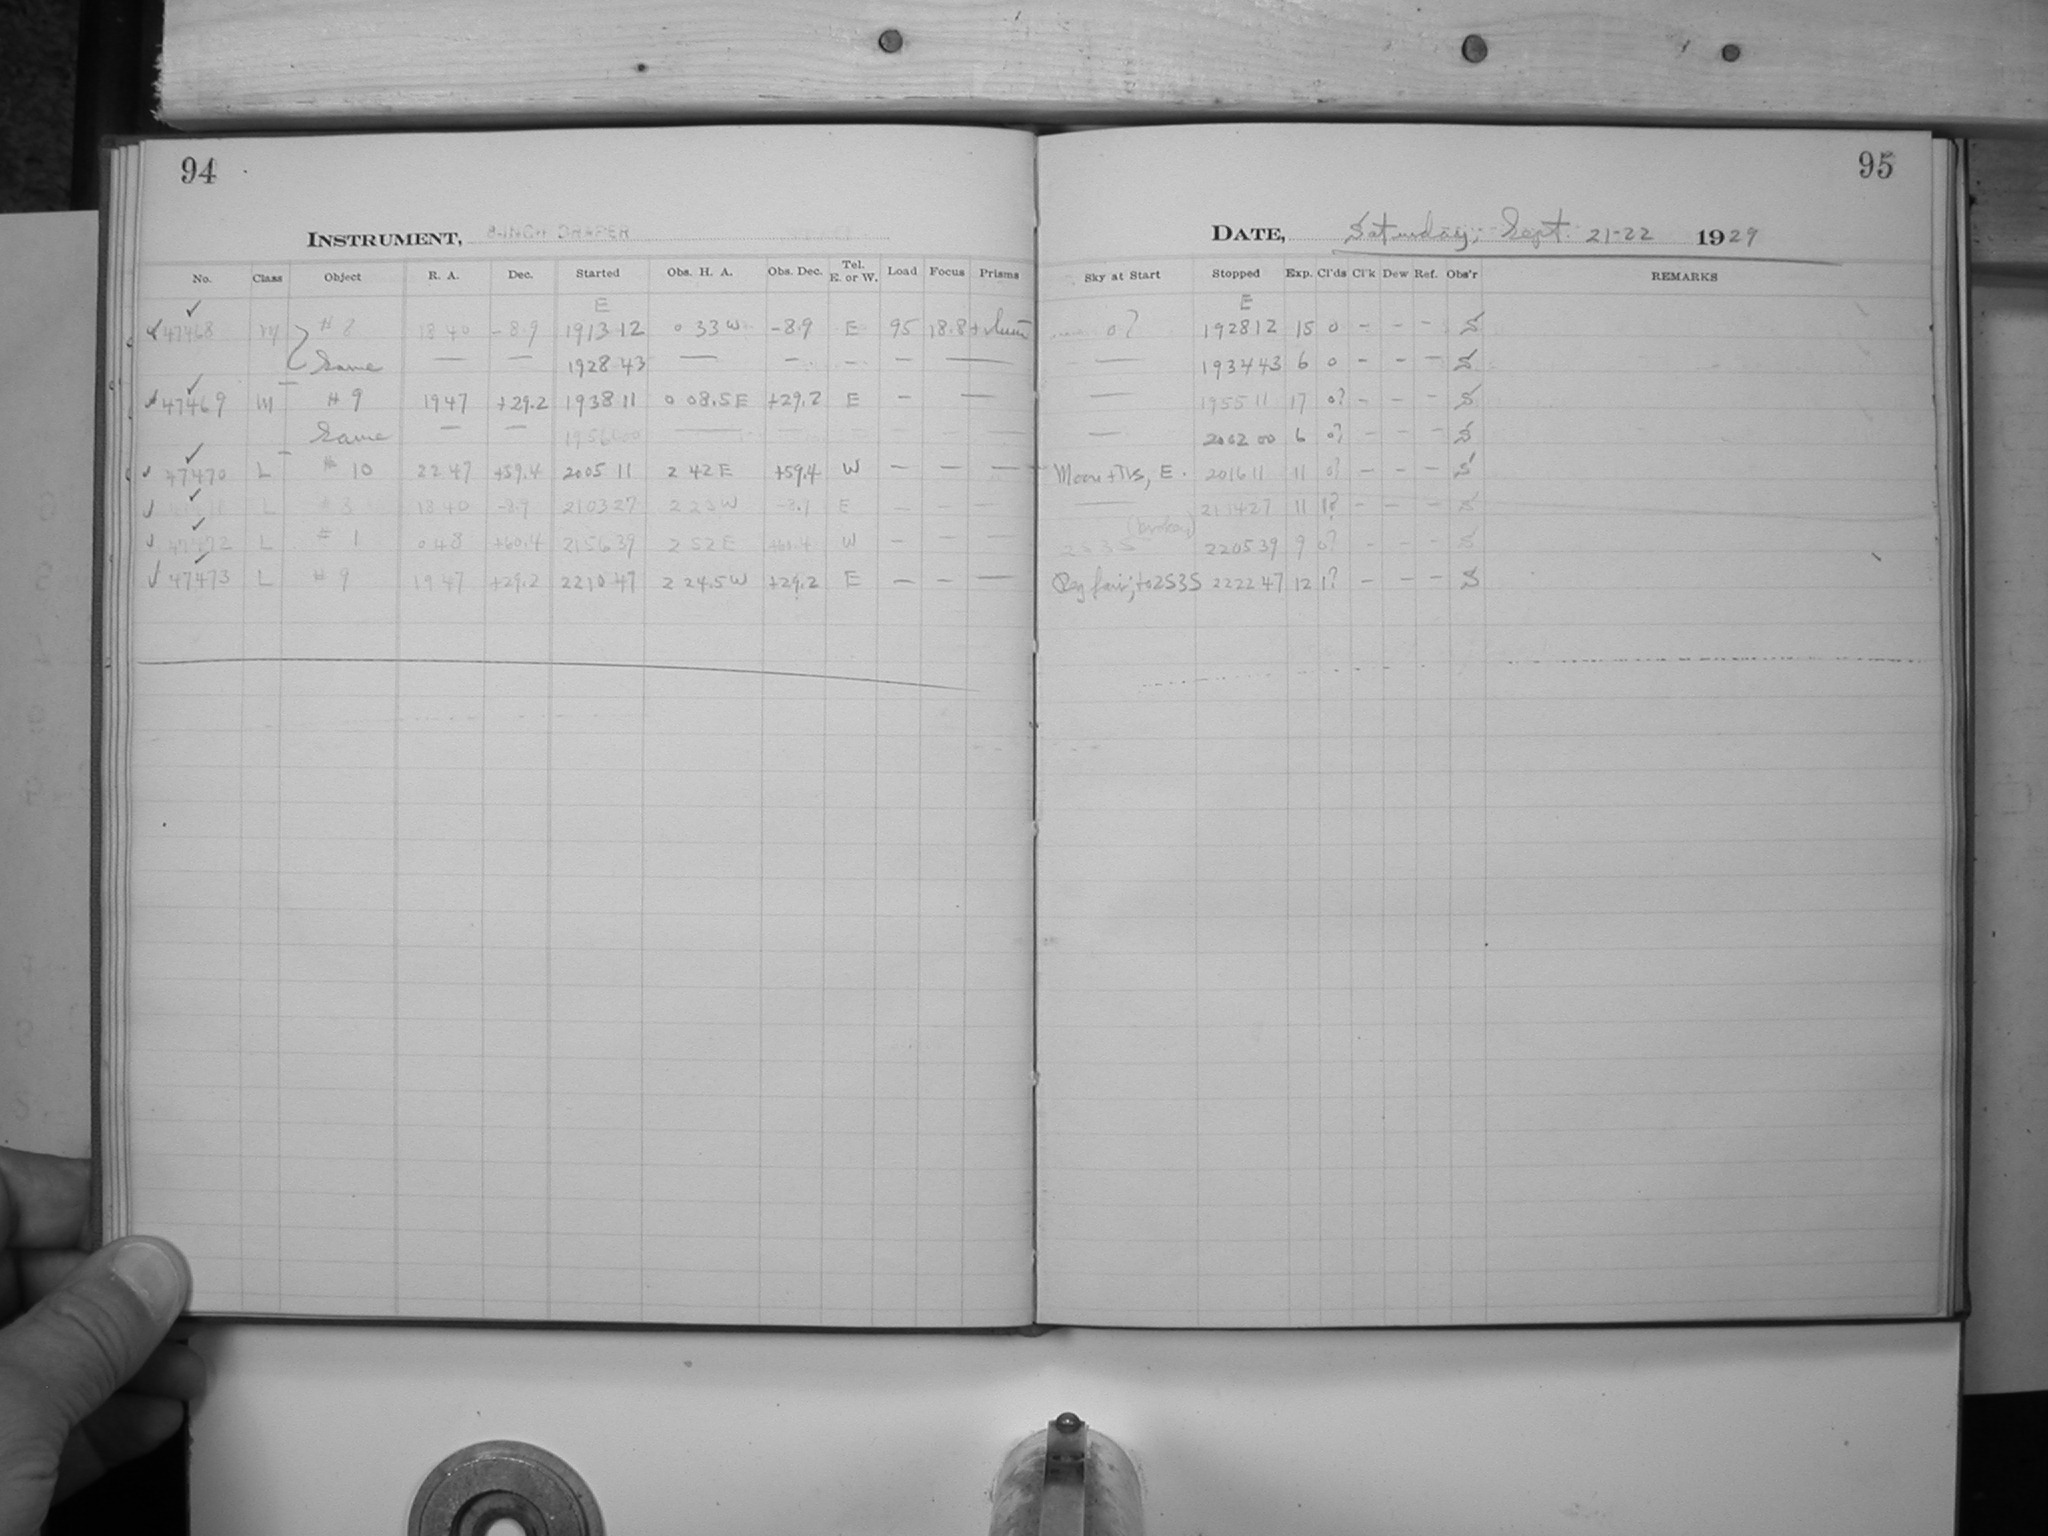 94
INSTRUMENT, 8-INCH DRAPER
No. Class Object R. A. Dec. Started Obs. H. A. Obs. Dec. Tel. E. or W. Load Focus Prisms
E
47468 M # 8 18 40 -8.9 19 13 12 0 33 W -8.9 E 95 18.8
Same — — 19 28 43 — — - — — —
47469 M # 9 19 47 +29.2 19 38 11 0 08.5 E +29.2 E — —
Same — — 19 56 00 —
47470 L # 10 22 47 +59.4 20 05 11 2 42 E +59.4 W — — —
L 18 40 -8.9 21 03 27 2 23 W -8.9 E — — —
47472 L # 1 0 48 +60.4 21 56 39 2 52 E W — — —
47473 L # 9 19 47 +29.2 22 10 47 2 24.5 W +29.2 E — — —
95
DATE, Saturday, Sept. 21-22 1929
Sky at Start Stopped Exp. Cl'ds Cl'k Dew Ref. Obs'r REMARKS
E
0? 19 28 12 15 0 - - - S
— 19 34 43 6 0 - - - S
— 19 55 11 17 0? - - - S
— 20 02 00 6 0? - - - S
Moon + , E. 20 16 11 11 0? - - - S
— 21 14 27 11 1? - - - S
2S3S 22 05 39 9 0? - - - S
Peg fair; to 2S3S 22 22 47 12 1? - - - S